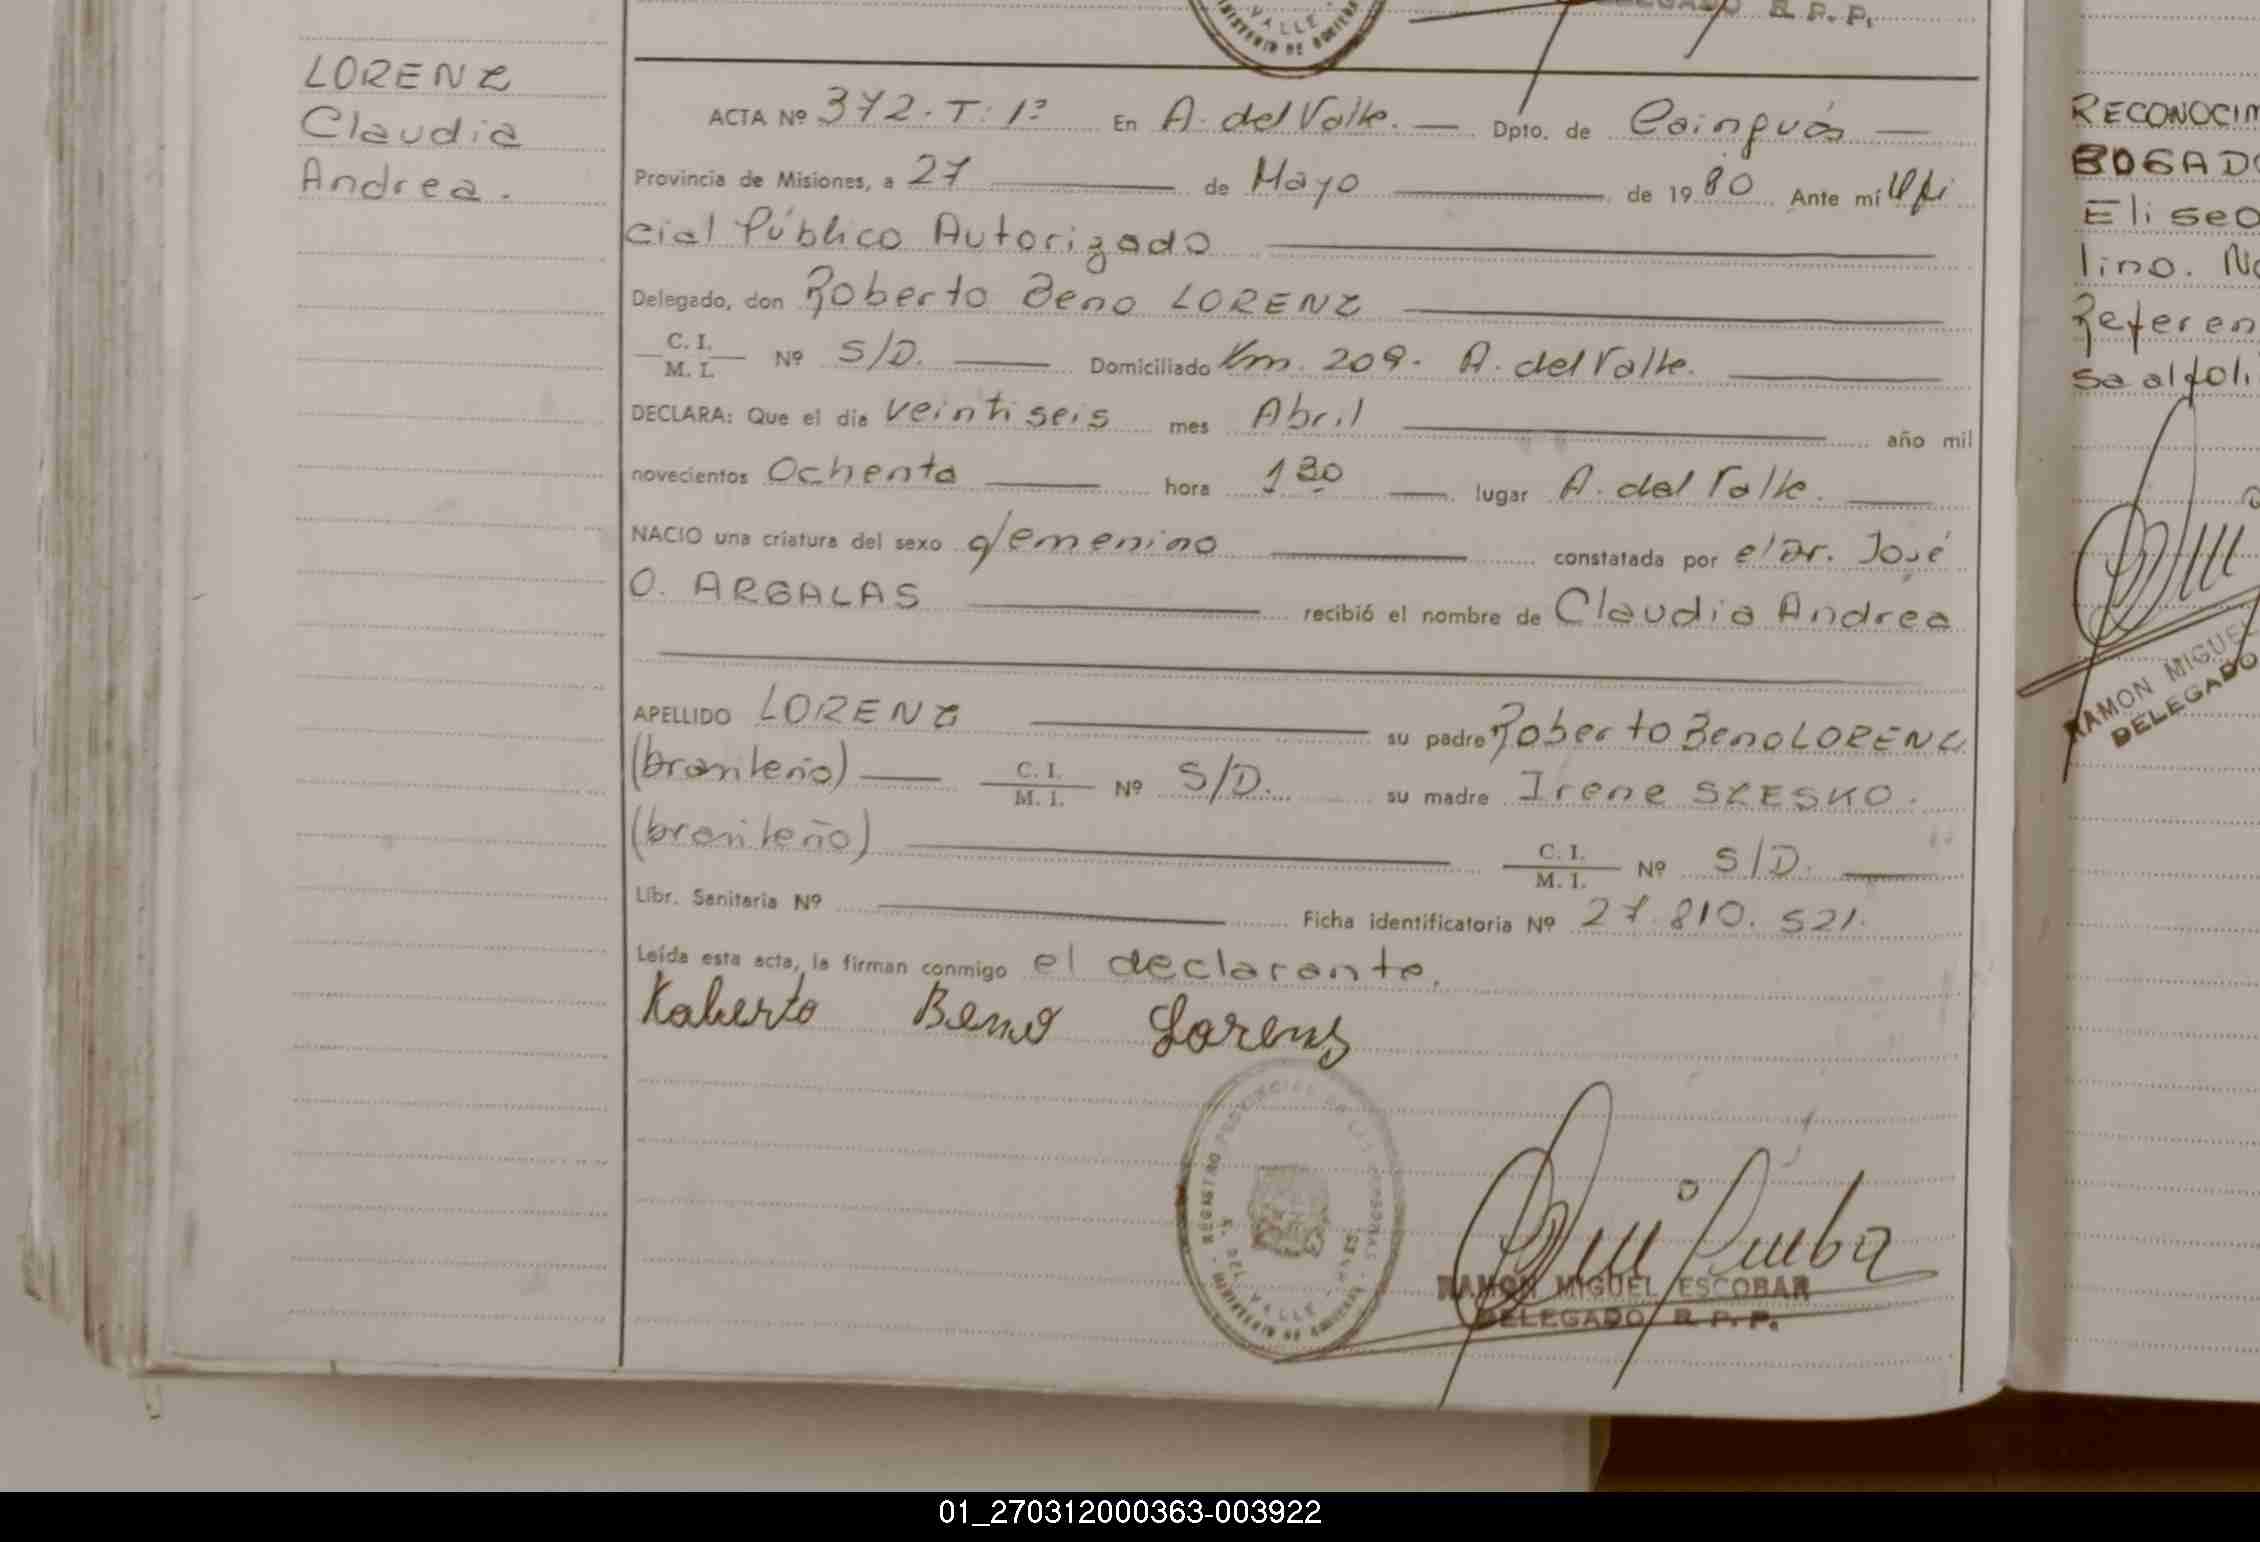 DELEGADO R P. P.
VALLE
MINISTERIO DE
LORENZ
Claudia
Andrea.
ACTA Nº 372. T: 1º En A. del Valle. Dpto. de Cainguás
Provincia de Misiones, a 27 de Mayo de 1980 Ante mí Ofi
cial Público Autorizado
Delegado, don Roberto Beno LORENZ
C. I.
M. I. Nº S/D. Domiciliado Km. 209. A. del Valle.
DECLARA: Que el día veintiseis mes Abril año mil
novecientos Ochenta hora 1 30 lugar A. del Valle.
NACIO una criatura del sexo femenino constatada por el Dr. José
O. ARGALAS recibió el nombre de Claudia Andrea
APELLIDO LORENZ su padre Roberto Beno LORENZ
(brasileño) C. I.
M. I. Nº S/D. su madre Irene SZESKO.
(brasileño) C. I.
M. I. Nº S/D.
Libr. Sanitaria Nº Ficha identificatoria Nº 27.810.521.
Leída esta acta, la firman conmigo el declarante.
Roberto Beno Lorenz
REGISTRO PROVINCIAL DE LAS PERSONAS
A. DEL VALLE - MNES.
MINISTERIO DE
RAMON MIGUEL ESCOBAR
DELEGADO R P. P.
RECONOCIM
BOGADO
Eliseo
lino. No
Referen
sa al foli
RAMON MIGUEL
DELEGADO
01_270312000363-003922